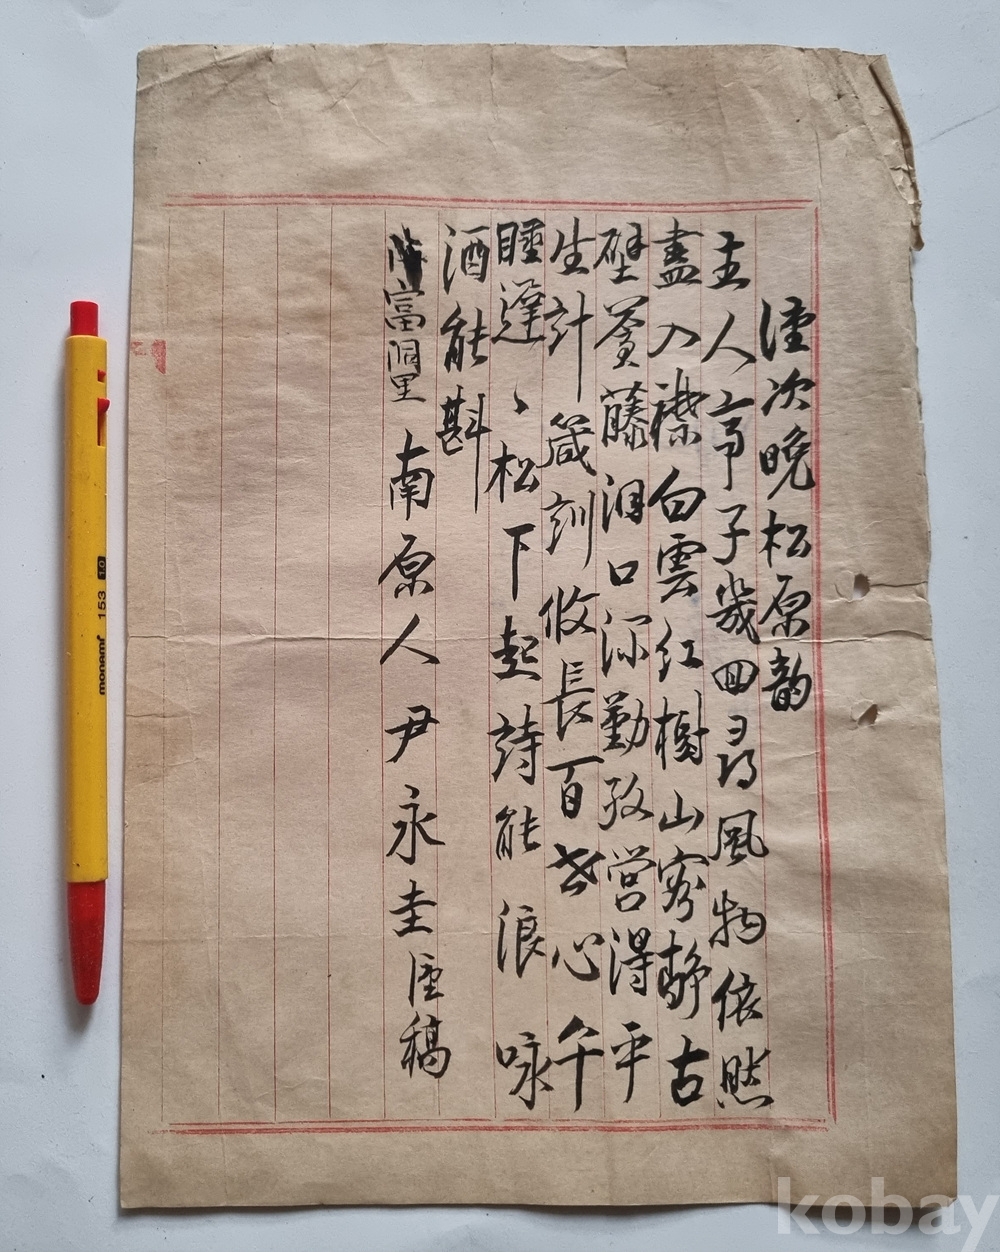 謹次晩松原韵
主人亭子幾回尋風物依然
盡入襟白雲紅樹山容静古
壁蒼藤洞口深勤孜営得平
生計箴訓攸長百世心午
睡蘧〻松下起詩能浪咏
酒能斟
富洞里 南原人尹永圭謹稿
monami 153 1.0
kobay